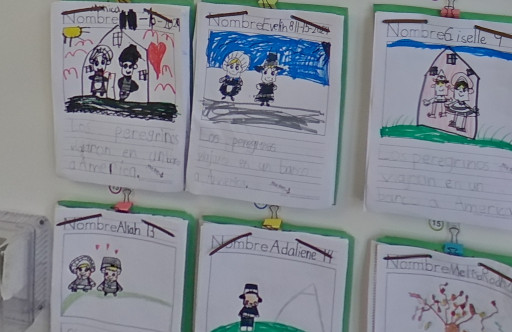 Nombre
Los peregrinos
viajaron en un barco
a América.
Nombre Evelin 8 11-13-20
Los peregrinos
viajaron en un barco
a América.
Nombre Giselle 9
Los peregrinos
viajaron en un
barco a América
Nombre Aliah 13
Nombre Adaliene 14
Nombre